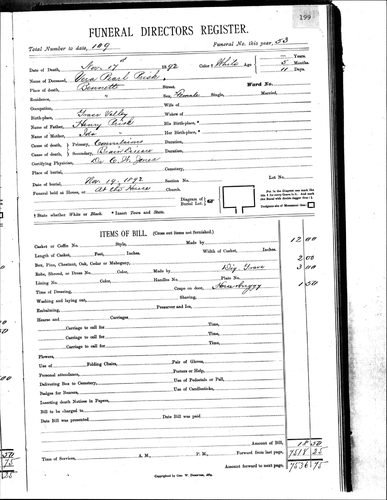 199
FUNERAL DIRECTORS REGISTER.
Total Number to date, 129 Funeral No. this year, 53
Date of Death, Nov. 17th 1892 Color † White Age — Years
Name of Deceased, Vera Pearl Prisk 5 Months
11 Days
Place of death, Bennett Street. Ward No.
Residence, Sex, Female Single, Married,
Occupation, Wife of
Birth-place, Grass Valley Widow of
Name of Father, Henry Prisk His Birth-place *
Name of Mother, Ida Her Birth-place *
Cause of death; Primary, Convulsions Duration,
Cause of death; Secondary, Brain Disease Duration,
Certifying Physician, Dr. C. W. Jones
Place of burial, Cemetery,
Date of burial, Nov. 19, 1892 Section No. Lot No.
Funeral held at House, or At the House Church.
Diagram of Burial Lot.
† State whether White or Black. * Insert Town and State.
ITEMS OF BILL. (Cross out items not furnished.)
Casket or Coffin No. Style, Made by 12.00
Length of Casket, Feet, Inches. Width of Casket, Inches.
Box, Pine, Chestnut, Oak, Cedar or Mahogany, 2.00
Robe, Shroud, or Dress No. Color, Made by Dig. Grave 3.00
Lining No. Color, Handles No. Plate No.
Time of Dressing, Crape on door, 1.50
Washing and laying out, Shaving,
Embalming, Preserver and Ice,
Hearse and Carriages.
Carriage to call for Time,
Carriage to call for Time,
Carriage to call for Time,
Carriage to call for Time,
Flowers,
Use of Folding Chairs, Pair of Gloves,
Personal attendance, Porters or Help,
Delivering Box to Cemetery, Use of Pedestals or Pall,
Badges for Nearers, Use of Candlesticks,
Inserting death Notices in Papers,
Bill to be charged to
Date Bill was presented Date Bill was paid
Amount of Bill, 18 50
Time of Services, A. M., P. M., Forward from last page, 7518 25
Amount forward to next page, 7536 75